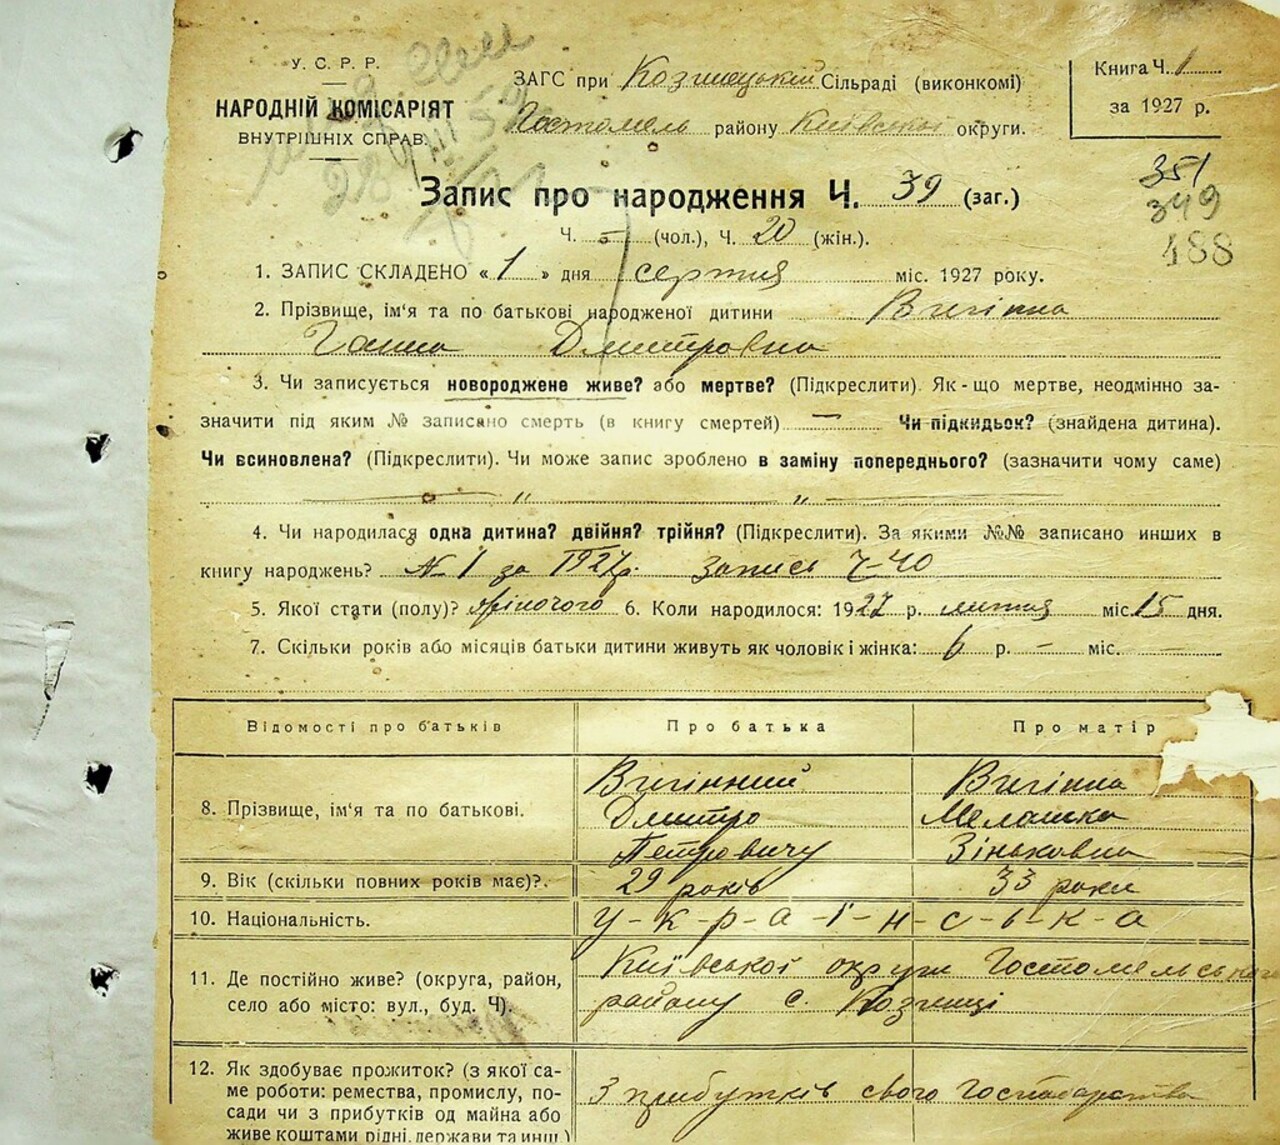 У. С. Р. Р.
НАРОДНІЙ КОМІСАРІЯТ
ВНУТРІШНІХ СПРАВ.
ЗАГС при Сільраді (виконкомі)
Гостомель району Київської округи.
Книга Ч. 1
за 1927 р.
351
349
188
Запис про народження Ч. 39 (заг.)
Ч. – (чол.), Ч. 20 (жін.).
1. ЗАПИС СКЛАДЕНО « 1 » дня серпня міс. 1927 року.
2. Прізвище, ім'я та по батькові народженої дитини
Ганна Дмитровна
3. Чи записується новороджене живе? або мертве? (Підкреслити). Як-що мертве, неодмінно за-
значити під яким № записано смерть (в книгу смертей) — Чи підкидьок? (знайдена дитина).
Чи всиновлена? (Підкреслити). Чи може запис зроблено в заміну попереднього? (зазначити чому саме)
„ „
4. Чи народилася одна дитина? двійня? трійня? (Підкреслити). За якими №№ записано инших в
книгу народжень? № 1 за 1927р. Запись Ч-40
5. Якої стати (полу)? жіночого 6. Коли народилося: 1927 р. лютня міс. 15 дня.
7. Скільки років або місяців батьки дитини живуть як чоловік і жінка: 6 р. – міс. –
Відомості про батьків Про батька Про матір
8. Прізвище, ім'я та по батькові.
Дмитро Мелашка
Петровичу Зіньковна
9. Вік (скільки повних років має)?. 29 років 33 роки
10. Національність. у-к-р-а-ї-н-с-ь-к-а
11. Де постійно живе? (округа, район, Київської округи Гостомельського
село або місто: вул., буд. Ч). району с.
12. Як здобуває прожиток? (з якої са-
ме роботи: ремества, промислу, по- З прибутків свого Господарства
сади чи з прибутків од майна або
живе коштами рідні, держави та инш.)